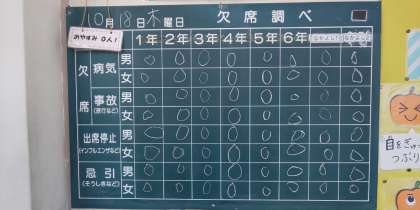 10月18日木曜日 欠席調べ
おやすみ 0人!
1年 2年 3年 4年 5年 6年 なかよし1 なかよし2
欠席
病気 男 0 0 0 0 0 0 0 0
女 0 0 0 0 0 0 0 0
事故 男 0 0 0 0 0 0 0 0
(旅行など) 女 0 0 0 0 0 0 0 0
出席停止 男 0 0 0 0 0 0 0 0
(インフルエンザなど) 女 0 0 0 0 0 0 0 0
忌引 男 0 0 0 0 0 0 0 0
(そうしきなど) 女 0 0 0 0 0 0 0 0
目をぎゅっ
つぶり